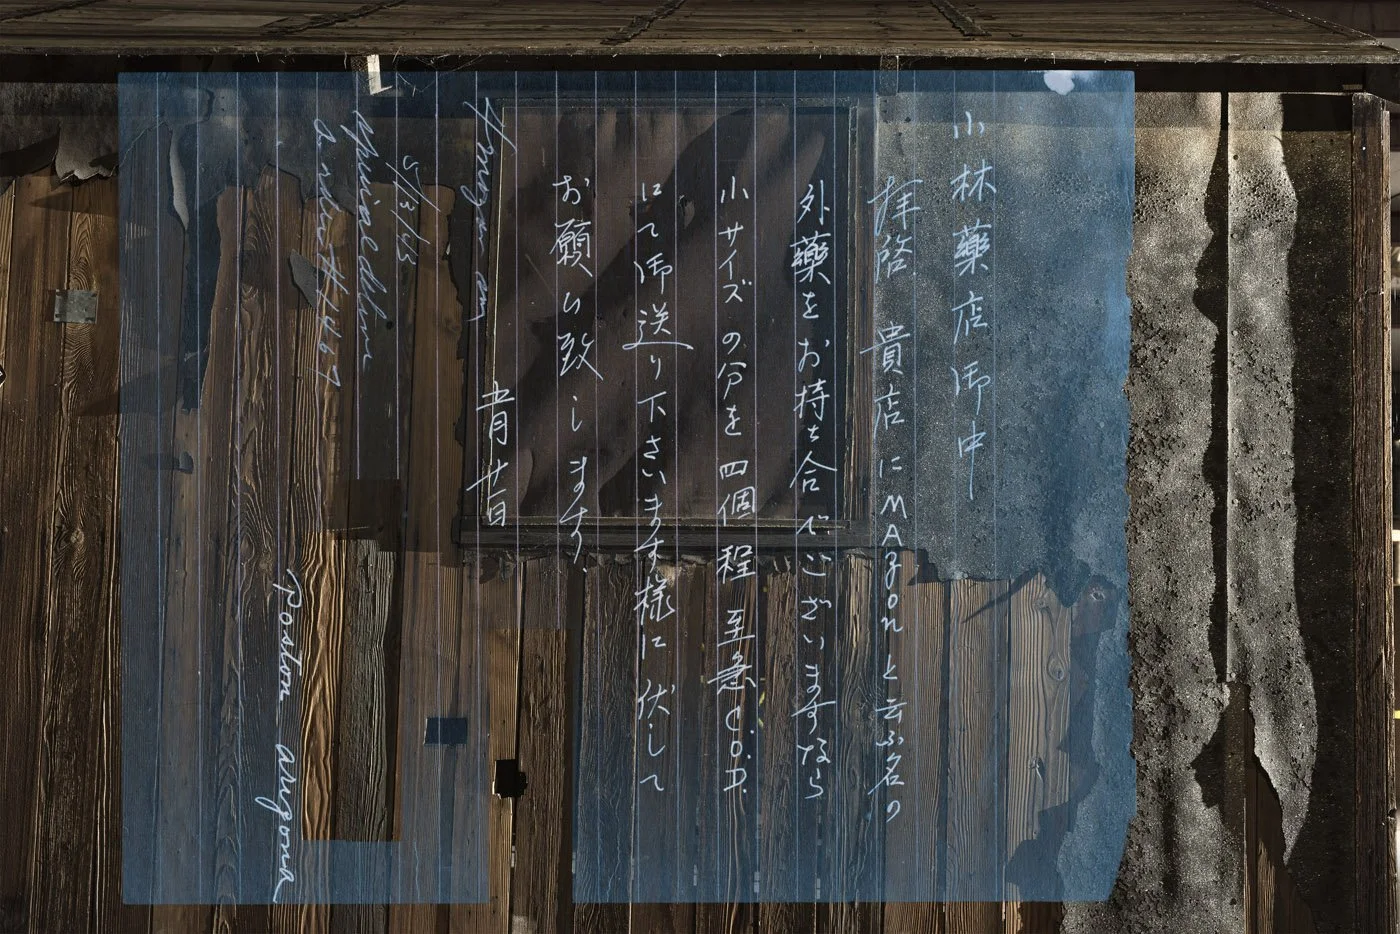 小林藥店御中
拝啓 貴店にMAzonと云ふ名の
外藥をお持ち合でございますなら
小サイズの分を四個程 至急C.O.D.
にて御送り下さいます様に伏して
お願ひ致します、
五月廿一日
5/3/43
order # 467
Poston arizona